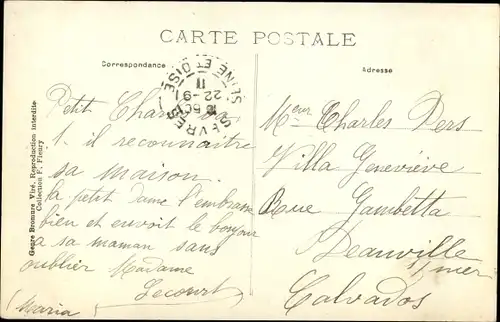 CARTE POSTALE
Correspondance
Adresse
SÈVRES
SEINE ET OISE
22-9
11
Genre Bromure Vite. Reproduction interdite
Collection F. Fleury
Petit Charlot
il reconnaitre
sa maison.
la petit dame l'embrasse
bien et envoit le bonjour
a sa maman sans
oublier Madame
Lecourt
(Maria
Meur Charles Pers
Villa Geneviève
Rue Gambetta
Deauville
s/mer
Calvados